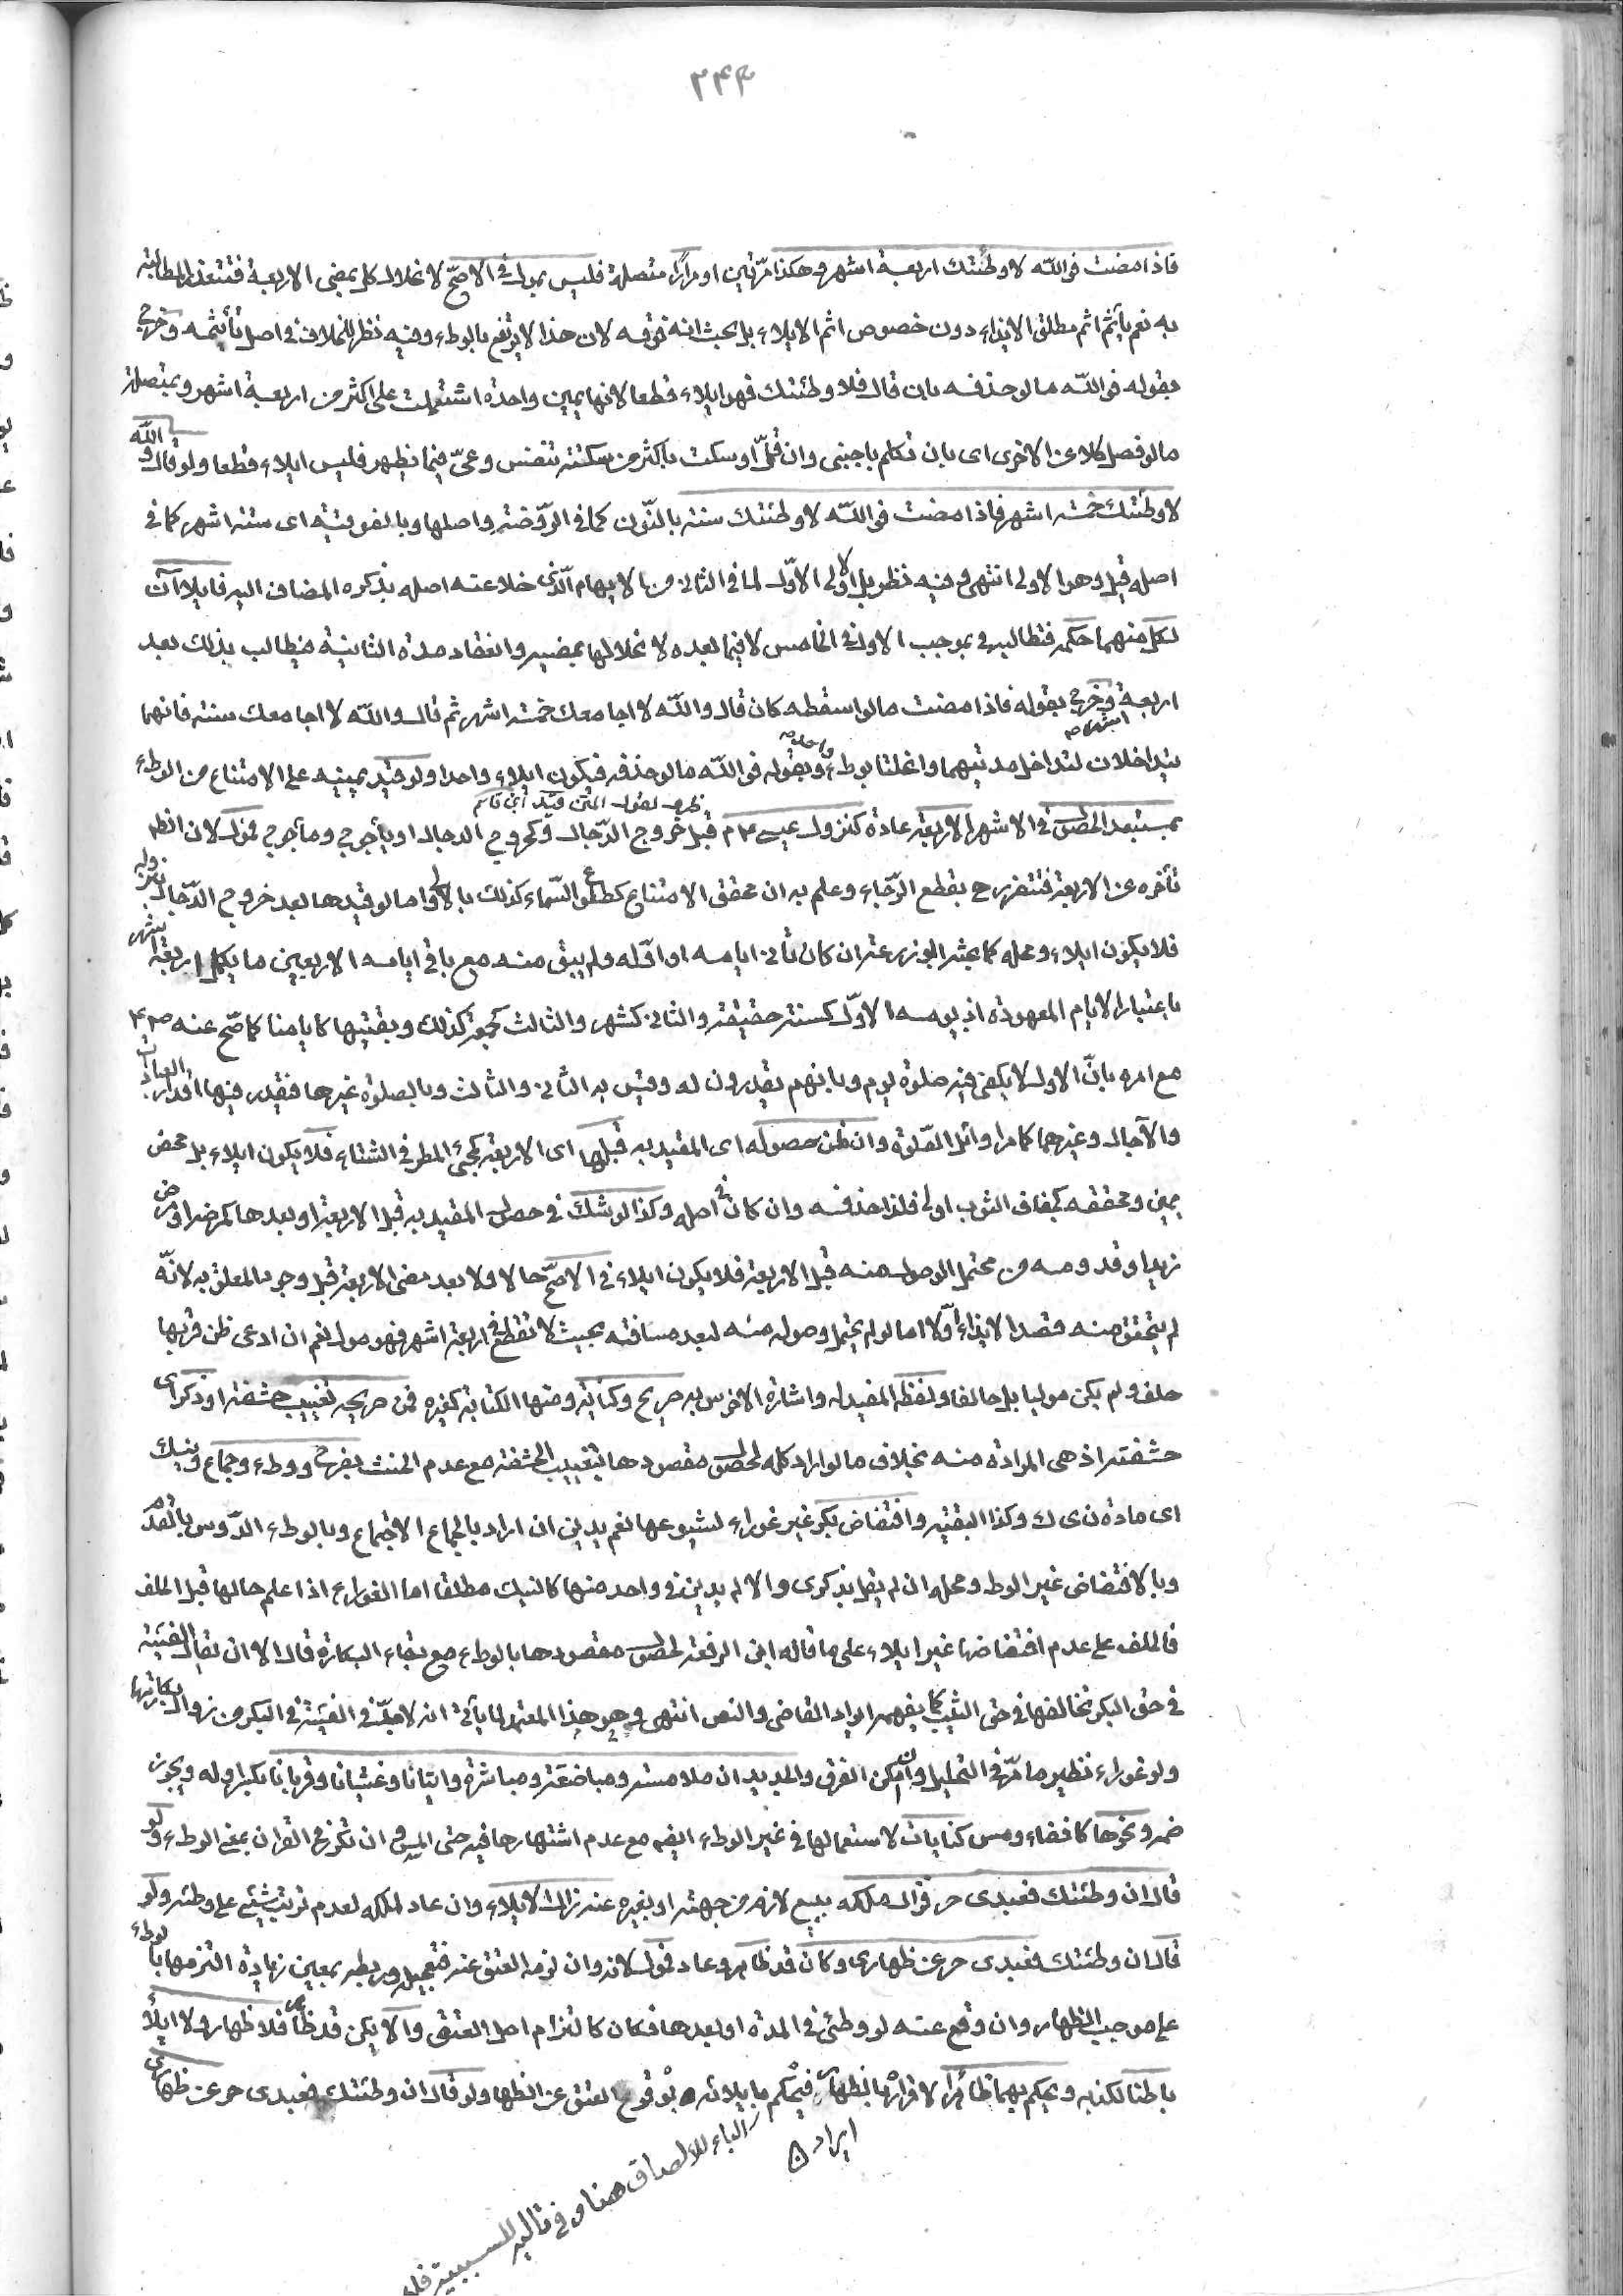 ٢٤٣
فاذا مضت فوالله لا وطئتك اربعة اشهر وهكذا مرتين او مرارًا متصلة فليس بمول في الاصح لانحلال كل بمضي الاربعة فتتعذر المطالبة
به نعم يأثم اثم مطلق الايذاء دون خصوص اثم الايلاء بل بحث انه فوقه لان هذا لا يرتفع بالوطء وفيه نظر للخلاف في اصل تأثيمه وخرج
بقوله فوالله ما لو حذفه بان قال فلا وطئتك فهو ايلاء قطعا لانها يمين واحدة اشتملت على اكثر من اربعة اشهر وبمتصلة
ما لو فصل كلا عن الاخرى اى بان تكلم باجنبي وان قلّ او سكت باكثر من سكتة تنفس وعىّ فيما يظهر فليس ايلاء قطعا ولو قال والله
لا وطئتك خمسة اشهر فاذا مضت فوالله لا وطئتك سنة بالنون كما في الروضة واصلها وبالفوقية اى ستة اشهر كما في
اصله قيل وهو الاولى انتهى وفيه نظر بل الاولى الاوّل لما في الثاني من الايهام الذى خلا عنه اصله بذكره المضاف اليه فايلاآن
لكل منهما حكمه فتطالبه بموجب الاول في الخامس لا فيما بعده لانحلالها بمضيه وانعقاد مدة الثانية فيطالب بذلك بعد
اربعة اشهر وخرج بقوله فاذا مضت ما لو اسقطه كان قال والله لا اجامعك خمسة اشهر ثم قال والله لا اجامعك سنة فانهما
يتداخلان لتداخل مدتيهما وانحلتا بوطء واحد وبقوله فوالله ما لو حذفه فيكون ايلاء واحدا ولو قيد يمينه على الامتناع من الوطء
ظرف لقول المتن قيد ابن قاسم
بمستبعد الحصول في الاشهر الاربعة عادة كنزول عيسى ٤م قبل خروج الدجال وكخروج الدجال او يأجوج ومأجوج فمول لان الظ
تأخره عن الاربعة فتتضرر ح بقطع الرجاء وعلم به ان محقق الامتناع كطلوع السماء كذلك بالاولى اما لو قيدها بعد خروج الدجال بنزوله
فلا يكون ايلاء ومحله كما بحثه ابو زرعة ان كان ثاني ايامه او اوّله ولم يبق منه مع باقي ايامه الاربعين ما يكمل اربعة اشهر
باعتبار الايام المعهودة اذ يومه الاوّل كسنة حقيقة والثاني كشهر والثالث كجمعة كذلك وبقيتها كايامنا كما صح عنه ص م
مع امره بانّ الاول لا يكفي فيه صلوة يوم وبانهم يقدرون له وقيس به الثاني والثالث وبالصلوة غيرها فيقدر فيها اقدار العبادات
والآجال وغيرهما كما مر اوائل الصّلوة وان ظن حصوله اى المقيد به قبلها اى الاربعة كمجئ المطر في الشتاء فلا يكون ايلاء بل محض
يمين ومحققه كجفاف الثوب اولى فلذا حذفه وان كان في اصله وكذا لو شك في حصول المقيد به قبل الاربعة او بعدها كمرضه او مرض
زيد او قدومه من محتمل الوصول منه قبل الاربعة فلا يكون ايلاء في الاصح حالا ولا بعد مضي الاربعة قبل وجود المعلق به لانّه
لم يتحقق منه قصد الايذاء اوّلا اما لو لم يحتمل وصوله منه لبعد مسافته بحيث لا تقطع في اربعة اشهر فهو مول نعم ان ادعى ظن قربها
حلف ولم يكن موليا بل حالفا ولفظه المفيد له واشارة الاخرس به صريح وكناية ومنها الكتابة كغيره فمن صريحه تغييب حشفة او ذكر اى
حشفته اذ هى المرادة منه بخلاف ما لو اراد كله لحصول مقصودها بتغييب الحشفة مع عدم الحنث بفرج ووطء وجماع ونيك
اى مادة ن ى ك وكذا البقية وافتضاض بكر غير غوراء لشيوعها نعم يدين ان اراد بالجماع الاجتماع وبالوطء الدّوس بالقدم
وبالافتضاض غير الوطء ومحله ان لم يقل بذكرى والا لم يدين في واحد منها كالنيك مطلقا اما الغوراء اذا علم حالها قبل الحلف
فالحلف على عدم افتضاضها غير ايلاء على ما قاله ابن الرفعة لحصول مقصودها بالوطء مع بقاء البكارة قال الا ان يقال الفيئة
في حق البكر تخالفها في حق الثيب كما يفهمه ايراد القاضي والنص انتهى وهو هذا المعتمد لما يأتي انه لا بدّ في الفيئة في البكر من زوال بكارتها
ولو غوراء نظير ما مرّ في التحليل وان امكن الفرق والجديد ان ملامسة ومباضعة ومباشرة واتيانا وغشيانا وقربانا بكسر اوله ويجوز
ضمه ونحوها كافضاء ومس كنايات لاستعمالها في غير الوطء ايضا مع عدم اشتهارها فيه حتى المس وان تكرر في القرآن بمعنى الوطء ولو
قال ان وطئتك فعبدى حر فزال ملكه ببيع لازم من جهته او بغيره عنه زال الايلاء وان عاد لملكه لعدم ترتب شيئ على وطئه ولو
قال ان وطئتك فعبدى حر عن ظهارى وكان قد ظاهر وعاد فمول لانه وان لزمه العتق عنه فتعجيله وربطه بمعين زيادة التزمها بالوطء
على موجب الظهار وان وقع عنه لو وطئ في المدة او بعدها فكان كالتزام اصل العتق والا يكن قد ظاهر فلا ظهار ولا ايلاء
باطنا لكذبه ويحكم بهما ظاهرًا لاقراره بالظهار فيحكم بايلائه وبوقوع العتق عن الظهار ولو قال ان وطئتك فعبدى حر عن ظهارى
ايراد
الباء للالصاق هنا وفي تاليه للسببية